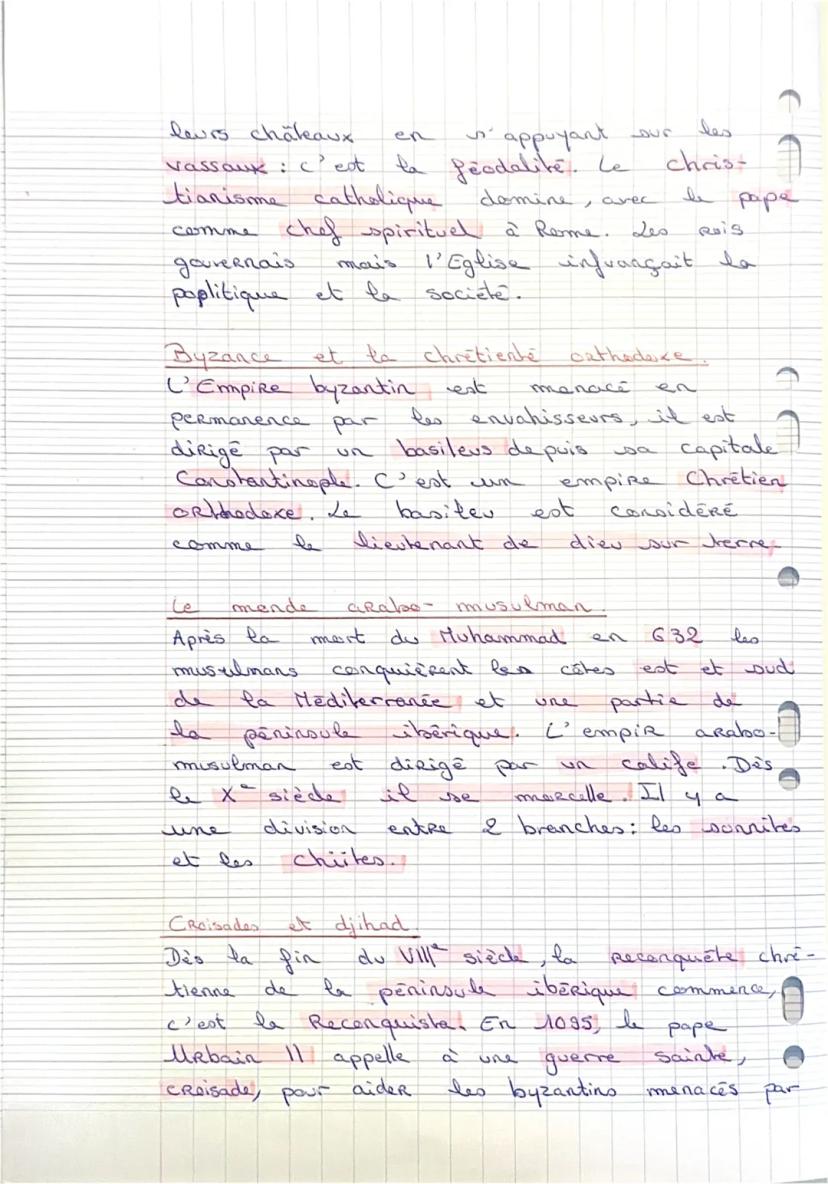 leurs châteaux en s'appuyant sur les
vassaux : c'est la féodalité. Le chris-
tianisme catholique domine, avec le pape
comme chef spirituel à Rome. Les rois
gouvernais mais l'Eglise infuançait la
poplitique et la société.
Byzance et la chrétienté orthodoxe.
L'Empire byzantin est menacé en
permanence par les envahisseurs, il est
dirigé par un basileus depuis sa capitale
Constantinople. C'est un empire Chrétien
orthodoxe. Le basileu est considéré
comme le lieutenant de dieu sur terre.
Le monde arabo-musulman.
Après la mort du Muhammad en 632 les
musulmans conquièrent les côtes est et sud
de la Méditerranée et une partie de
la péninsule ibérique. L'empir arabo-
musulman est dirigé par un calife. Dès
le Xe siècle il se morcelle. Il y a
une division entre 2 branches : les sunnites
et les chiites.
Croisades et djihad
Dès la fin du VIIIe siècle, la reconquête chré-
tienne de la péninsule ibérique commence,
c'est la Reconquista. En 1095, le pape
Urbain II appelle à une guerre sainte,
croisade, pour aider les byzantins menacés par